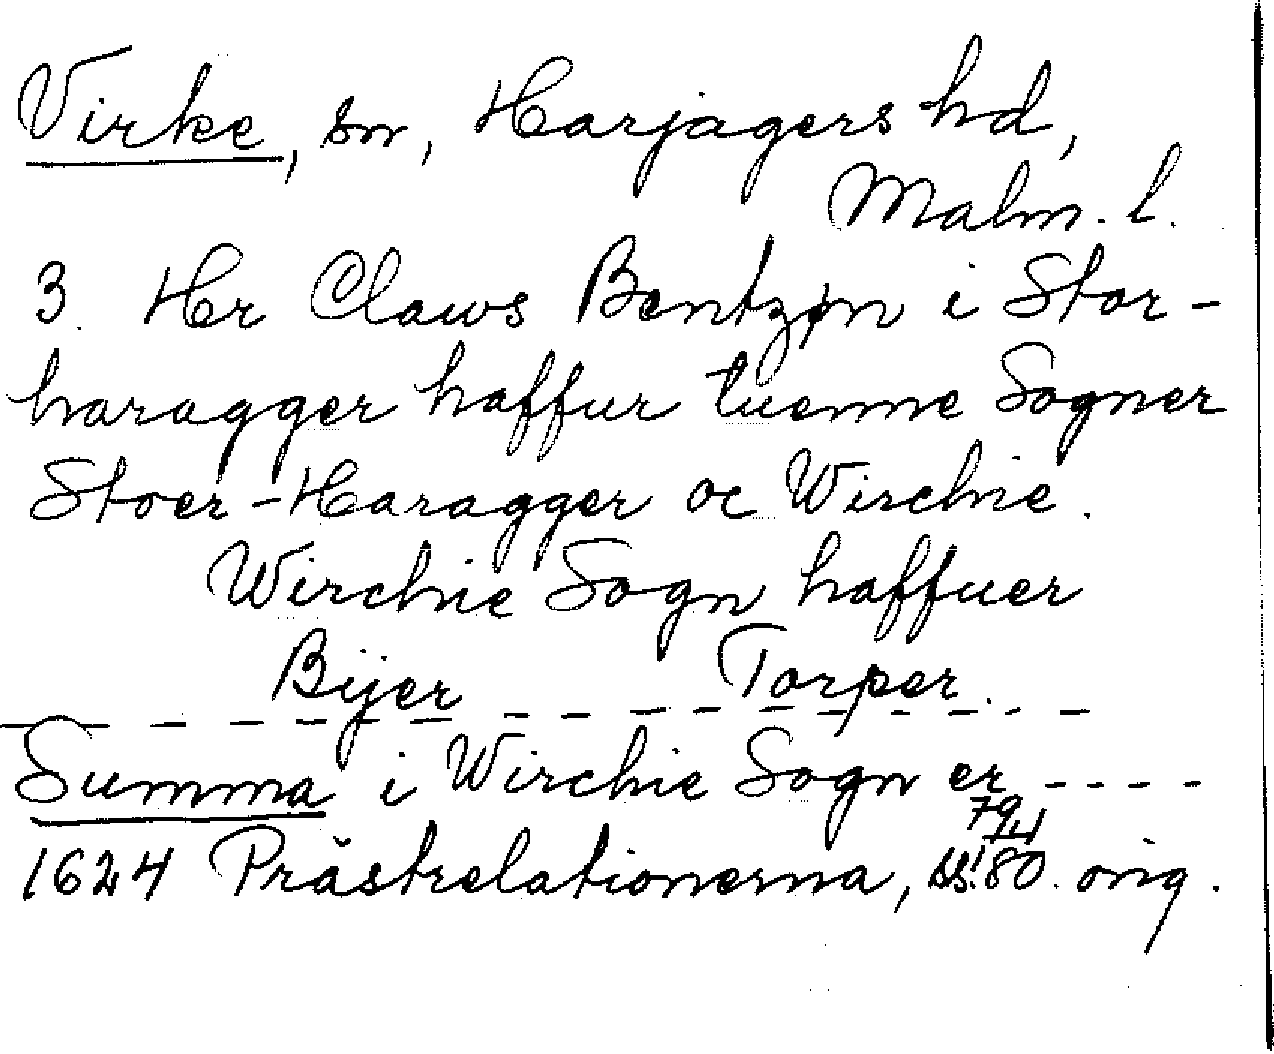 Virke, sn, Harjagers hd,
Malm. l.
3. Her Claws Bentzøn i Stor-
haragger haffur tuenne Sogner
Stoer-Haragger oc Wirchie.
Wirchie Sogn haffuer
Bijer Torper.
Summa i Wirchie Sogn er ----
79/4
1624 Prästrelationerna, s. 80. orig.